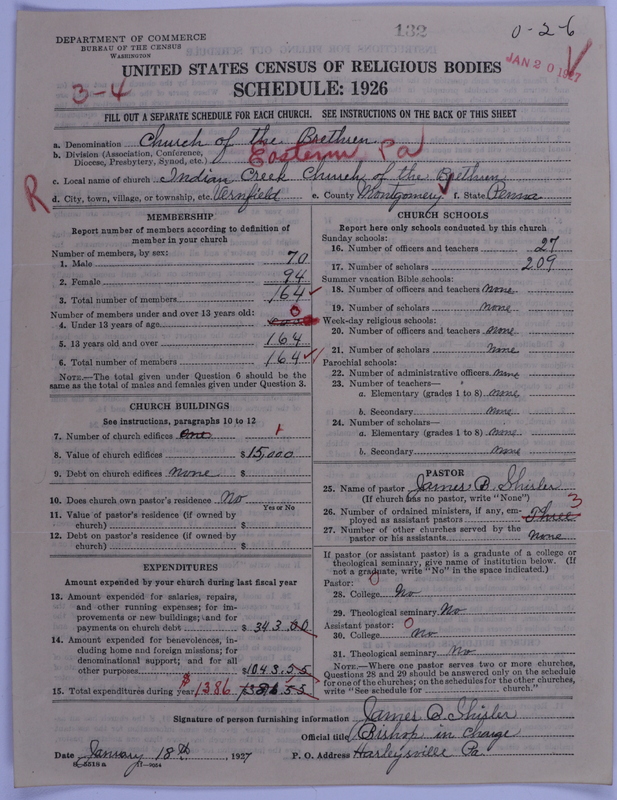 DEPARTMENT OF COMMERCE
BUREAU OF THE CENSUS
WASHINGTON
132
0-2-6
JAN 20 1927
UNITED STATES CENSUS OF RELIGIOUS BODIES
3-4
SCHEDULE: 1926
FILL OUT A SEPARATE SCHEDULE FOR EACH CHURCH. SEE INSTRUCTIONS ON THE BACK OF THIS SHEET
a. Denomination Church of the Brethren
b. Division (Association, Conference, Diocese, Presbytery, Synod, etc.) Eastern Pa
c. Local name of church Indian Creek Church of the Brethren
R
d. City, town, village, or township, etc. Vernfield e. County Montgomery f. State Penna
MEMBERSHIP
Report number of members according to definition of
member in your church
Number of members, by sex:
1. Male 70
2. Female 94
3. Total number of members 164
Number of members under and over 13 years old:
4. Under 13 years of age 0
5. 13 years old and over 164
6. Total number of members 164
NOTE.—The total given under Question 6 should be
same as the total of males and females given under Question 3.
CHURCH BUILDINGS
See instructions, paragraphs 10 to 12
7. Number of church edifices one 1
8. Value of church edifices $15,000
9. Debt on church edifices none $
10. Does church own pastor's residence No
Yes or No
11. Value of pastor's residence (if owned by
church) $
12. Debt on pastor's residence (if owned by
church) $
EXPENDITURES
Amount expended by your church during last fiscal year
13. Amount expended for salaries, repairs,
and other running expenses; for im-
provements or new buildings; and for
payments on church debt $ 343.00
14. Amount expended for benevolences, in-
cluding home and foreign missions; for
denominational support; and for all
other purposes $1043.55
15. Total expenditures during year $1386 1386.55
CHURCH SCHOOLS
Report here only schools conducted by this church
Sunday schools:
16. Number of officers and teachers 27
17. Number of scholars 209
Summer vacation Bible schools:
18. Number of officers and teachers None
19. Number of scholars None
Week-day religious schools:
20. Number of officers and teachers None
21. Number of scholars None
Parochial schools:
22. Number of administrative officers None
23. Number of teachers—
a. Elementary (grades 1 to 8) None
b. Secondary None
24. Number of scholars—
a. Elementary (grades 1 to 8) None
b. Secondary None
PASTOR
25. Name of pastor James B. Shisler
(If church has no pastor, write "None")
26. Number of ordained ministers, if any, em-
ployed as assistant pastors Three 3
27. Number of other churches served by the
pastor or his assistants None
If pastor (or assistant pastor) is a graduate of a college or
theological seminary, give name of institution below. (If
not a graduate, write "No" in the space indicated.)
Pastor: 0
28. College No
29. Theological seminary No
Assistant pastor: 0
30. College No
31. Theological seminary No
NOTE.—Where one pastor serves two or more churches,
Questions 28 and 29 should be answered only on the schedule
for one of the churches; on the schedules for the other churches,
write "See schedule for church."
Signature of person furnishing information James B. Shisler
Official title Bishop in Charge
Date January 18th, 1927 P. O. Address Harleysville Pa.